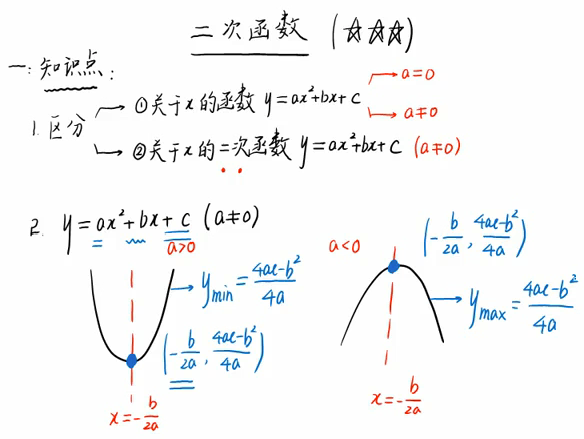 二次函数 (☆☆☆)
一:知识点:
1. 区分
①关于x的函数 y=ax²+bx+c
a=0
a≠0
②关于x的二次函数 y=ax²+bx+c (a≠0)
2. y=ax²+bx+c (a≠0)
a>0
y_min = (4ac-b²)/(4a)
(-b/(2a), (4ac-b²)/(4a))
x=-b/(2a)
a<0
(-b/(2a), (4ac-b²)/(4a))
y_max = (4ac-b²)/(4a)
x=-b/(2a)